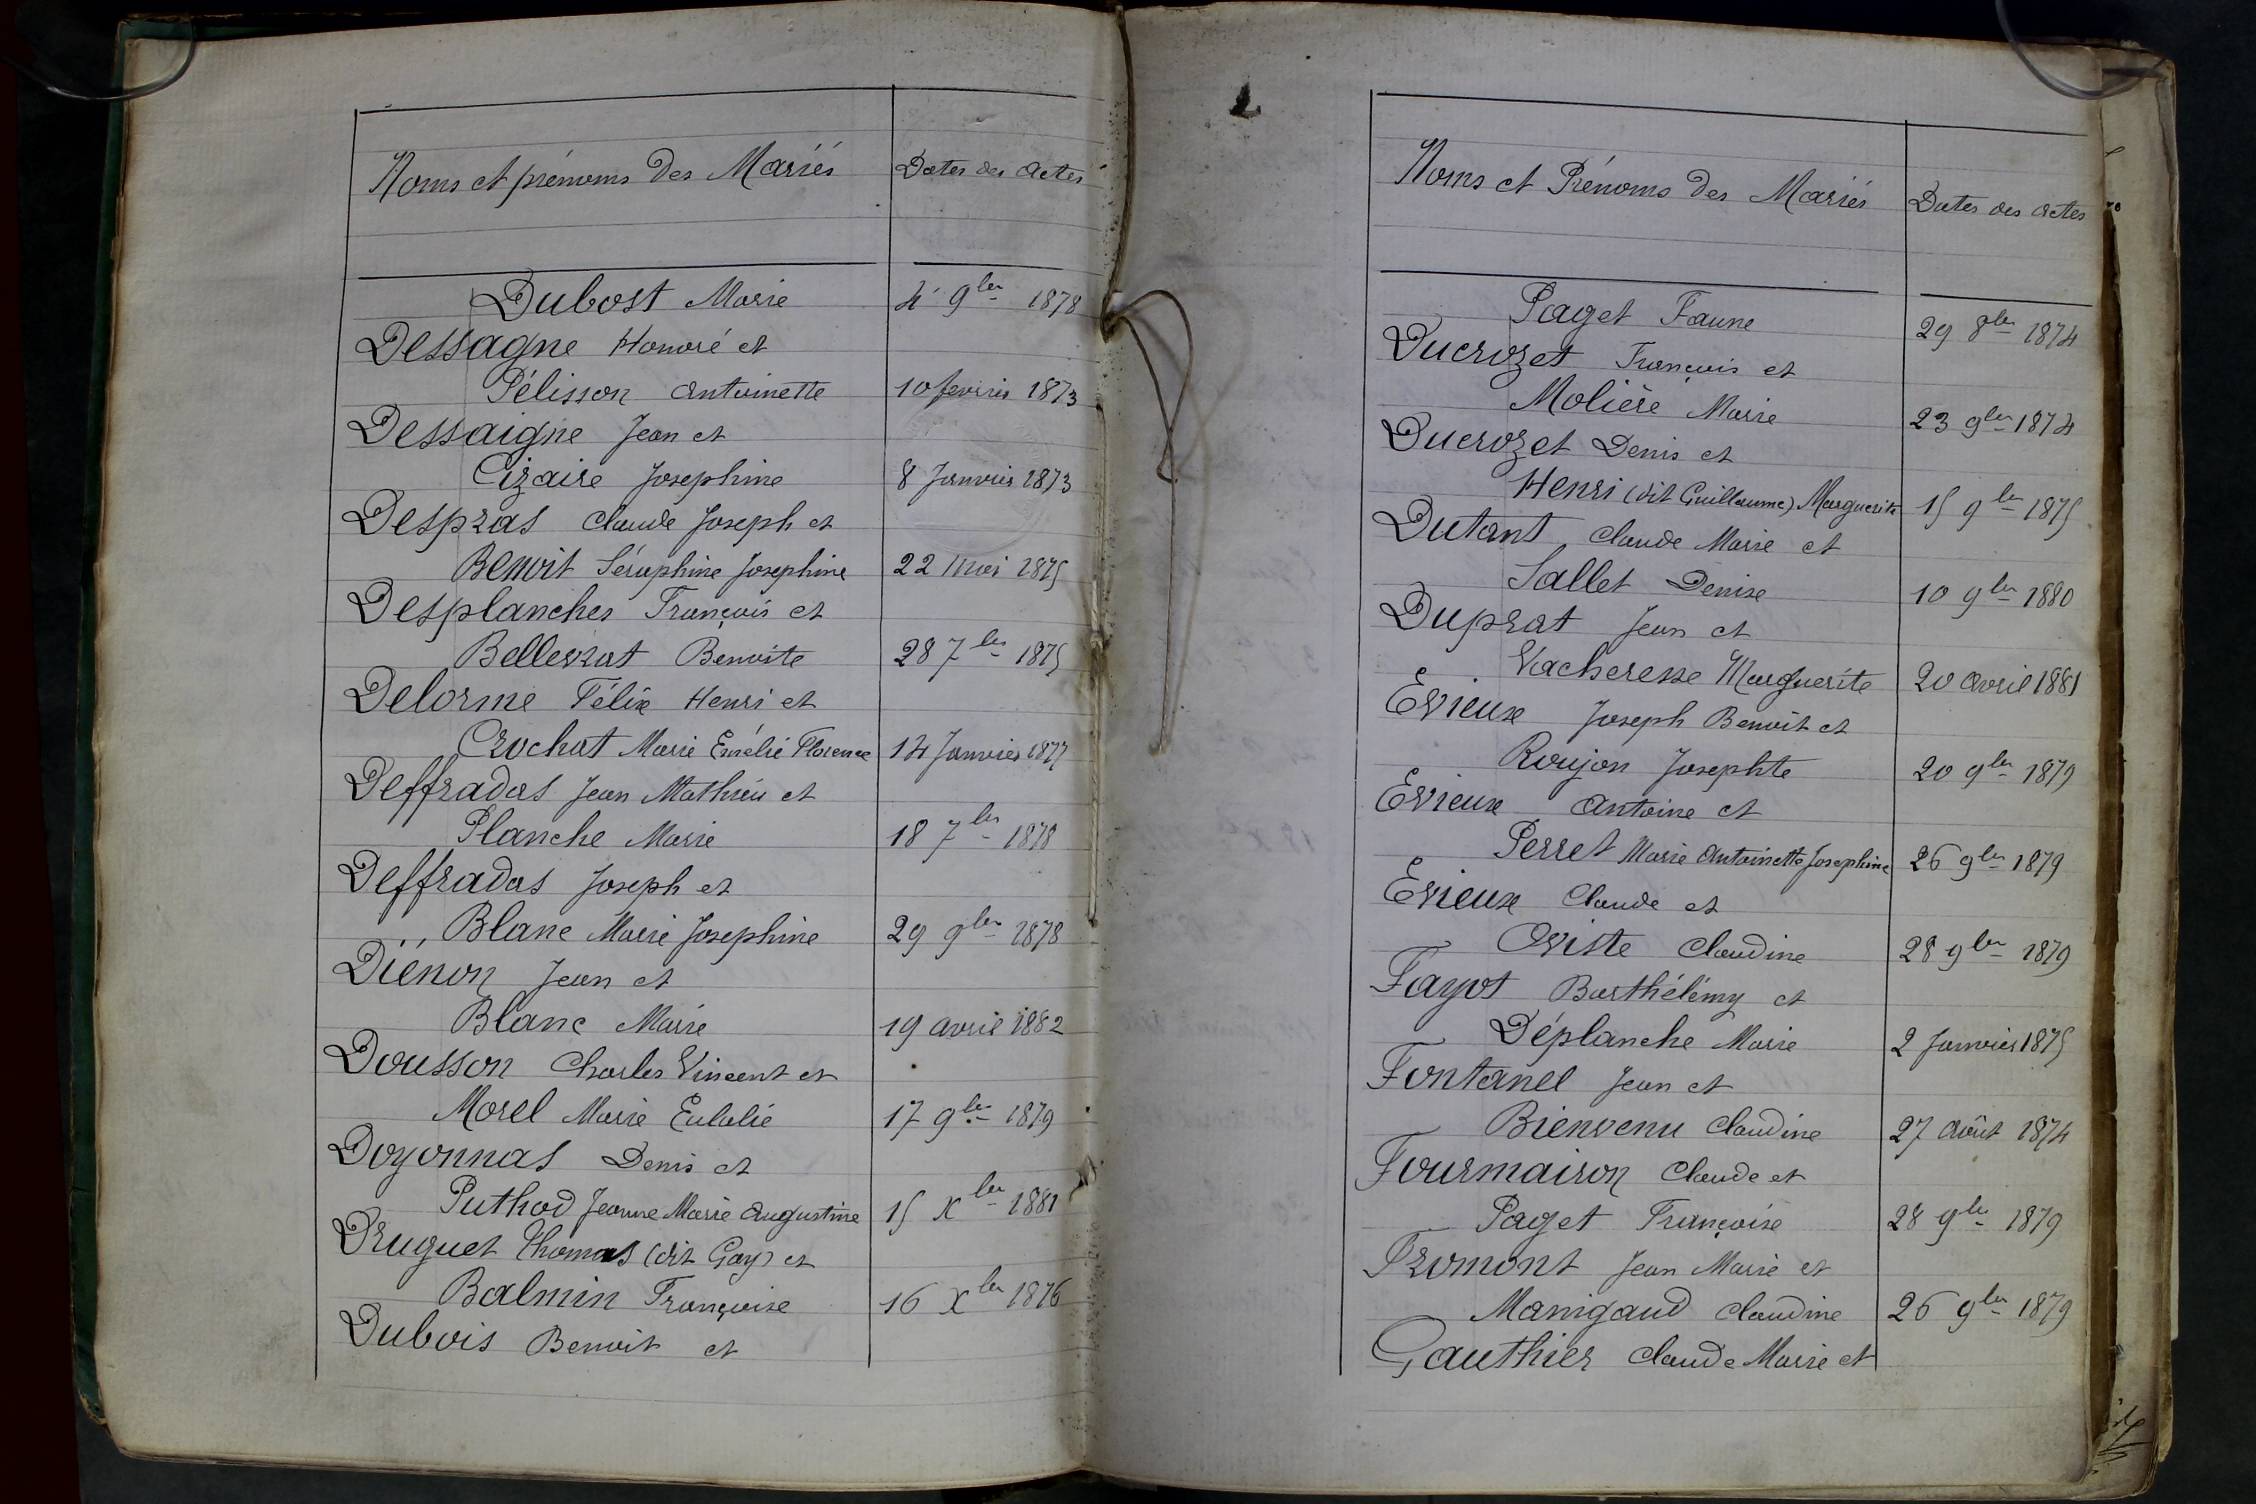 Noms et prénoms des Mariés
Dates des Actes
Dubost Marie 4 9bre 1878
Dessagne Honoré et
Pélisson Antoinette 10 fevrier 1873
Dessaigne Jean et
Cizaire Josephine 8 Janvier 1873
Despras Claude Joseph et
Benoit Séraphine Josephine 22 mai 1875
Desplanches François et
Bellevrat Benoite 28 7bre 1875
Delorme Félix Henri et
Crochat Marie Emélie Florence 14 Janvier 1877
Deffradas Jean Mathieu et
Planche Marie 18 7bre 1878
Deffradas Joseph et
Blanc Marie Josephine 29 9bre 1878
Diénon Jean et
Blanc Marie 19 avril 1882
Dousson Charles Vincent et
Morel Marie Eulalie 17 9bre 1879
Doyonnas Denis et
Puthod Jeanne Marie Augustine 15 Xbre 1881
Druguet Thomas (dit Gay) et
Balmin Françoise 16 Xbre 1876
Dubois Benoit et
2
Noms et Prénoms des Mariés
Dates des Actes
Paget Fanne 29 8bre 1874
Ducrozet François et
Molière Marie 23 9bre 1874
Ducrozet Denis et
Henri (dit Guillaume) Marguerite 15 9bre 1875
Dutant Claude Marie et
Sallet Denise 10 9bre 1880
Duprat Jean et
Vacheresse Marguerite 20 Avril 1881
Evieux Joseph Benoit et
Roujon Josephte 20 9bre 1879
Evieux Antoine et
Perret Marie Antoinette Josephine 26 9bre 1879
Evieux Claude et
Oviste Claudine 28 9bre 1879
Fayot Barthélémy et
Déplanche Marie 2 Janvier 1875
Fontanel Jean et
Bienvenu Claudine 27 Août 1874
Fourmaison Claude et
Paget Françoise 28 9bre 1879
Fromont Jean Marie et
Manigaud Claudine 26 9bre 1879
Gauthier Claude Marie et